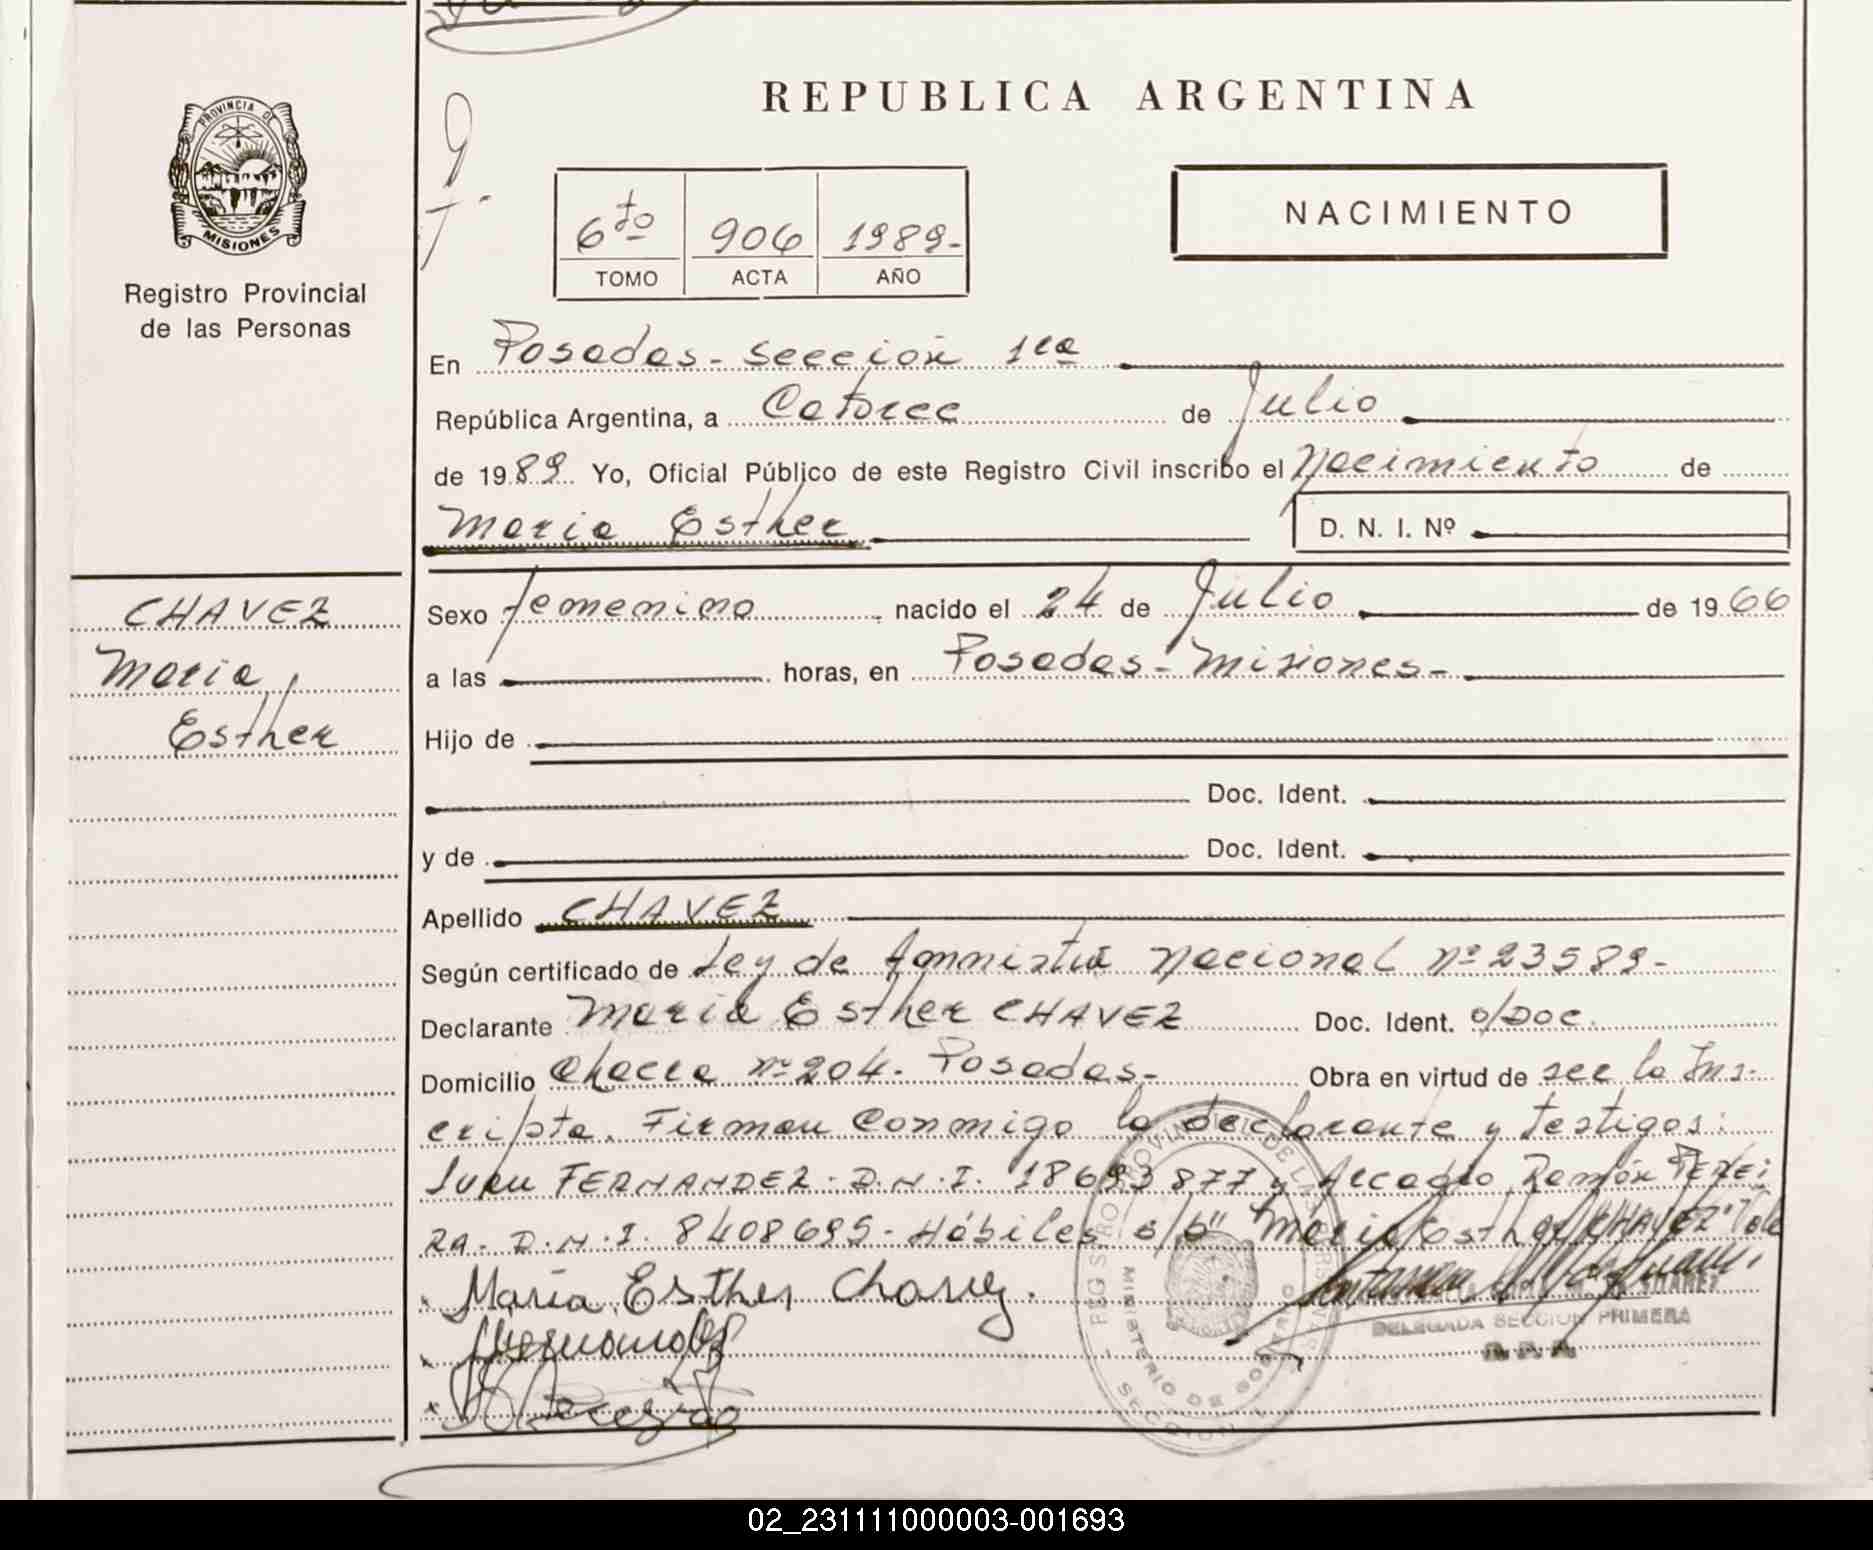 REPUBLICA ARGENTINA
PROVINCIA DE
MISIONES
Registro Provincial
de las Personas
6to 906 1989-
TOMO ACTA AÑO
NACIMIENTO
En Posadas - Sección 1ra
República Argentina, a Catorce de Julio
de 1989. Yo, Oficial Público de este Registro Civil inscribo el Nacimiento de
Maria Esther D. N. I. Nº
CHAVEZ
Maria
Esther
Sexo femenino nacido el 24 de Julio de 1966
a las horas, en Posadas - Misiones -
Hijo de
Doc. Ident.
y de Doc. Ident.
Apellido CHAVEZ
Según certificado de Ley de Amnistia Nacional Nº 23589-
Declarante Maria Esther CHAVEZ Doc. Ident. s/Doc.
Domicilio Chacra Nº 204. Posadas - Obra en virtud de ser la Ins-
cripta. Firman Conmigo la declarante y testigos:
Juan FERNANDEZ - D.N.I. 18693877 y Arcadio Ramón PEREI
RA. D.N.I. 8408695 - Hábiles s/b" Maria Esther CHAVEZ" Vale
Maria Esther Chavez.
DELEGADA SECCION PRIMERA
R.P.P.
REGISTRO PROVINCIAL DE LAS PERSONAS
MINISTERIO DE GOBIERNO
SECCION
02_231111000003-001693